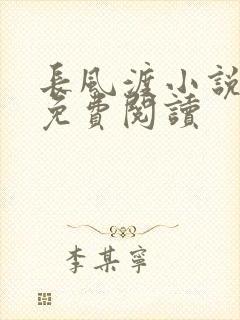 長風渡小說
免費閱讀
李某寧